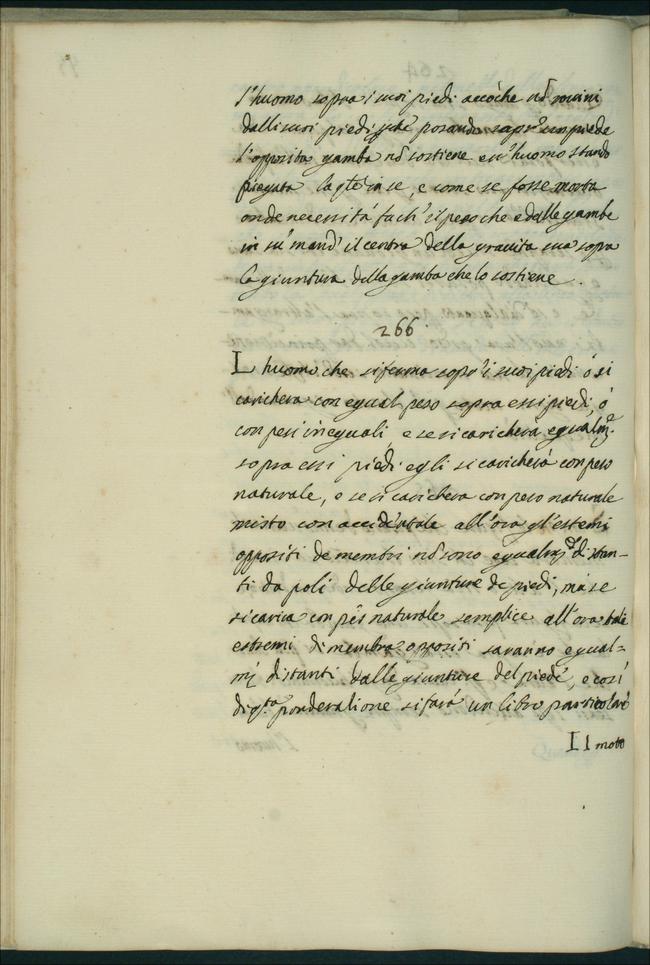 l'huomo sopra i suoi piedi accioche nō rovini
dalli suoi piedi, pchè posando sopr' un piede
l'opposita gamba nō sostiene esso huomo stando
piegata la qle in se, e come se fosse morta
onde necessità fa ch' il peso che e dalle gambe
in su' mand' il centro della gravità sua sopra
la giuntura della gamba che lo sostiene.
266
L huomo che si ferma sopr' i suoi piedi ò si
caricherà con egual peso sopra essi piedi, ò
con pesi ineguali, e se si caricherà egualmte
sopra essi piedi egli si caricherà con peso
naturale, e se si caricherà con peso naturale
misto con accidentale all'ora gl'estremi
oppositi de membri nō sono egualmte distan-
ti da poli delle giunture de piedi, ma se
si carica con peso naturale semplice all'ora tali
estremi di membra oppositi saranno egual=
mte distanti dalle giunture del piede, e così
di qsta ponderatione si farà un libro particolare
Il moto
266